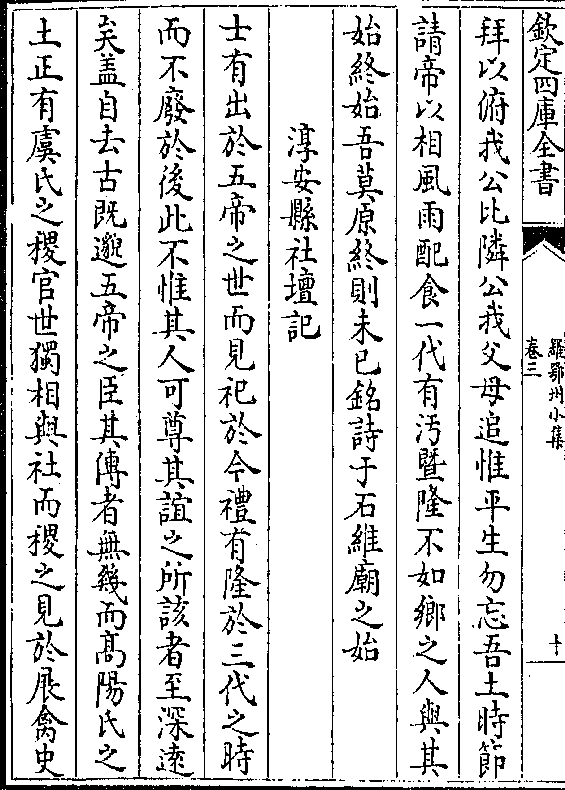 欽定四庫全書
羅鄂州小集
卷三
十
拜以俯我公比隣公我父母追惟平生勿忘吾土時節
請帝以相風雨配食一代有汚暨隆不如鄉之人與其
始終始吾莫原終則未已銘詩于石維廟之始
淳安縣社壇記
士有出於五帝之世而見祀於今禮有隆於三代之時
而不廢於後此不惟其人可尊其誼之所該者至深逺
矣盖自去古既邈五帝之臣其傳者無幾而髙陽氏之
土正有虞氏之稷官世獨相與社而稷之見於展禽史